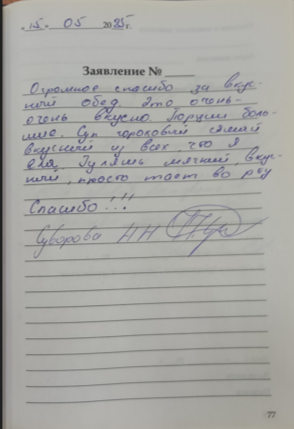 « 15 » 05 2025 г.
Заявление №
Огромное спасибо за вкус-
ный обед. Это очень-
очень вкусно. Порции боль-
шие. Суп гороховый самый
вкусный из всех, что я
ела. Гуляш мягкий, вкус-
ный, просто тает во рту
Спасибо!!!
Суворова НН
77